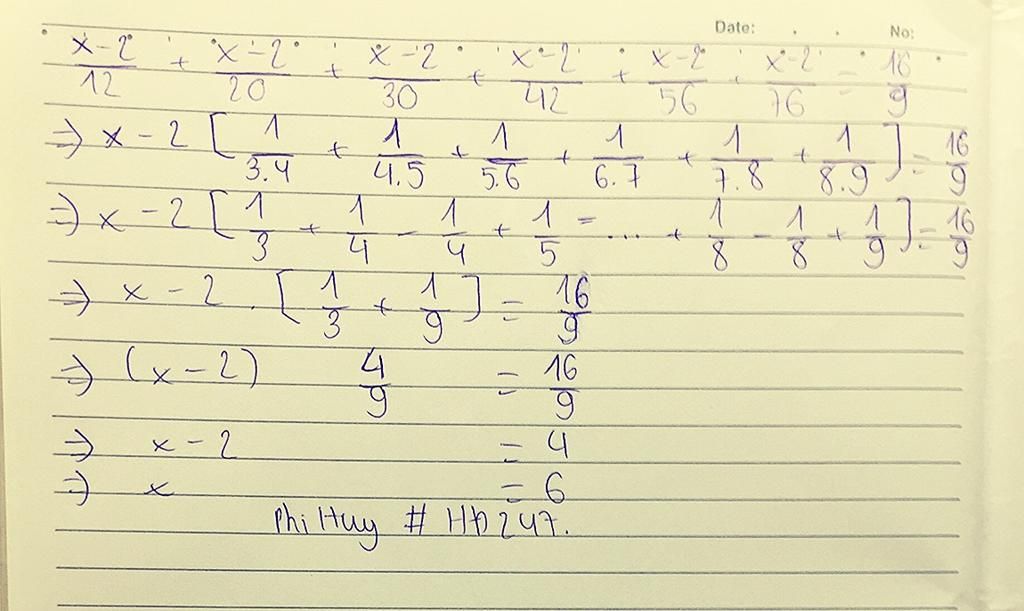 Date: No:
x-2/12 + x-2/20 + x-2/30 + x-2/42 + x-2/56 + x-2/76 = 16/9
=> x-2 [1/3.4 + 1/4.5 + 1/5.6 + 1/6.7 + 1/7.8 + 1/8.9] = 16/9
=> x-2 [1/3 + 1/4 - 1/4 + 1/5 - ... + 1/8 - 1/8 + 1/9] = 16/9
=> x-2 . [1/3 + 1/9] = 16/9
=> (x-2) 4/9 = 16/9
=> x-2 = 4
=> x = 6
Phi Huy # HĐ 247.